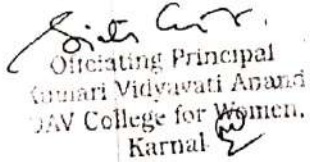 Officiating Principal
Kumari Vidyavati Anand
DAV College for Women,
Karnal